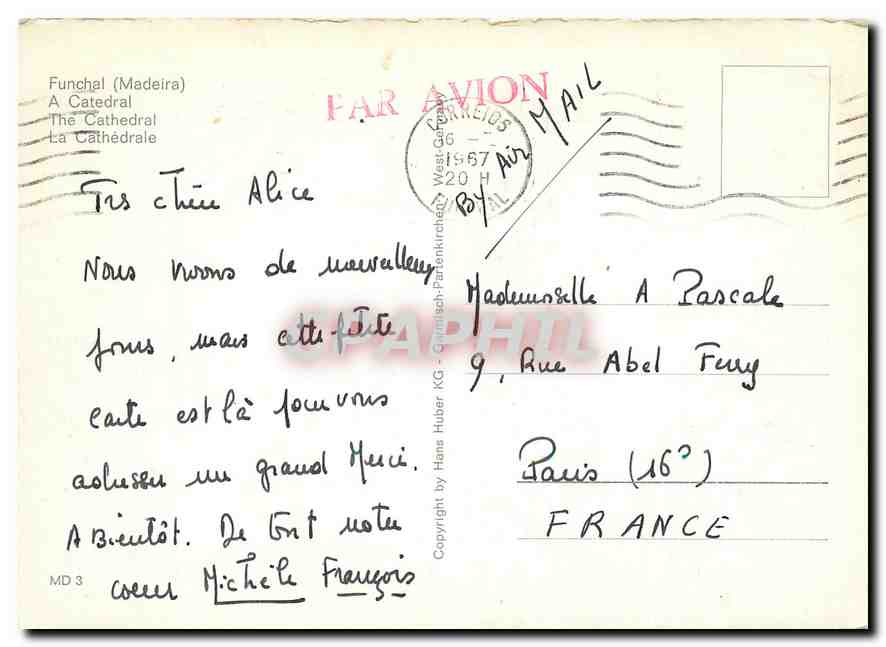 Funchal (Madeira)
A Catedral
The Cathedral
La Cathédrale
PAR AVION
CORREIOS
16
1967
20 H
FUNCHAL
BY AIR MAIL
Très chère Alice
Nous vivons de merveilleux
jours, mais cette petite
carte est là pour vous
adresser un grand Merci.
A Bientôt. De tout notre
coeur Michèle François
MD 3
Copyright by Hans Huber KG - Garmisch-Partenkirchen/West-Germany
Mademoiselle A Pascale
9, Rue Abel Ferry
Paris (16°)
FRANCE
CPAPHIL